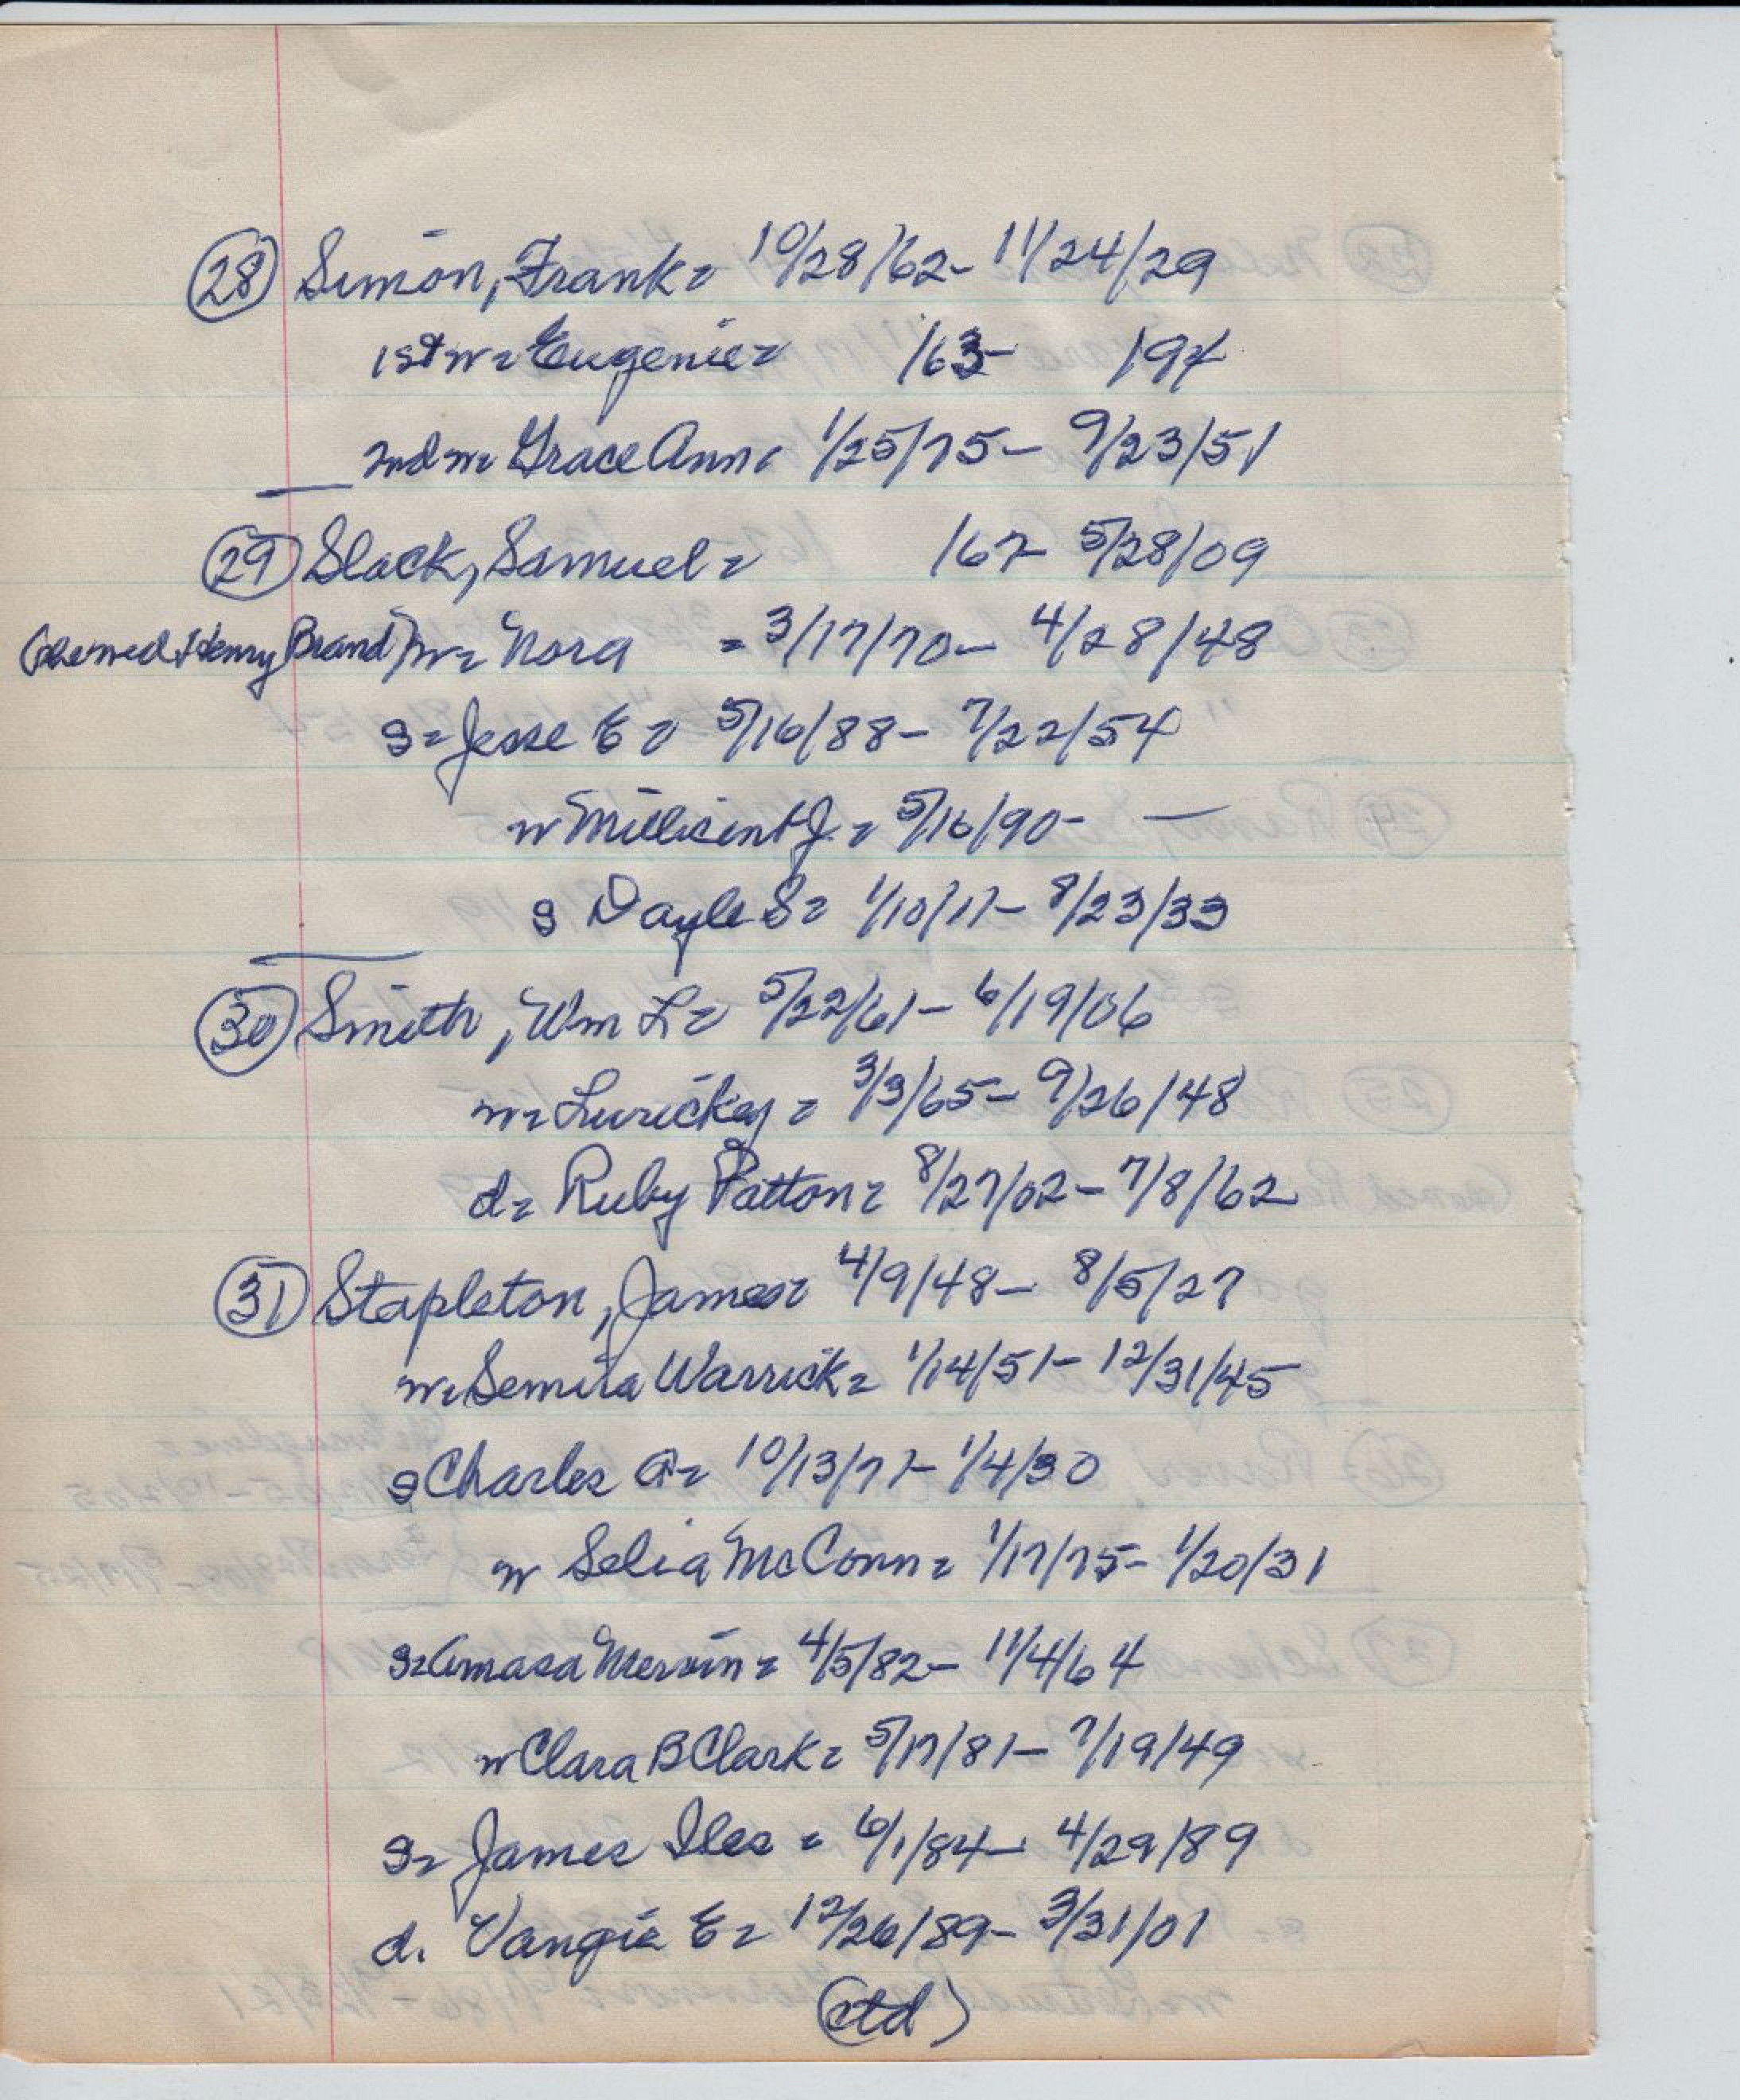 (28) Simon, Frank = 10/28/62 - 11/24/29
1st w = Eugenie = /63 - /94
2nd w = Grace Ann = 1/25/75 - 9/23/51
(29) Slack, Samuel = /67 - 5/28/09
Henry Brand) w = Nora = 3/17/70 - 4/28/48
s = Jesse E = 5/16/88 - 7/22/54
w Millicent J. = 5/16/90 - —
s Dayle S = 1/10/17 - 8/23/33
(30) Smith, Wm L = 5/22/61 - 6/19/06
w = Luvickey = 3/3/65 - 9/26/48
d = Ruby Patton = 8/27/02 - 7/8/62
(31) Stapleton, James = 4/9/48 - 8/5/27
w = Semira Warrick = 1/14/51 - 12/31/45
s Charles A = 10/13/77 - 1/4/30
w Selia McConn = 1/17/75 - 1/20/31
s = Amasa Mervin = 4/5/82 - 11/4/64
w Clara B Clark = 5/17/81 - 7/19/49
s = James Iles = 6/1/84 - 4/29/89
d. Vangie E = 12/26/89 - 3/31/01
(ctd)